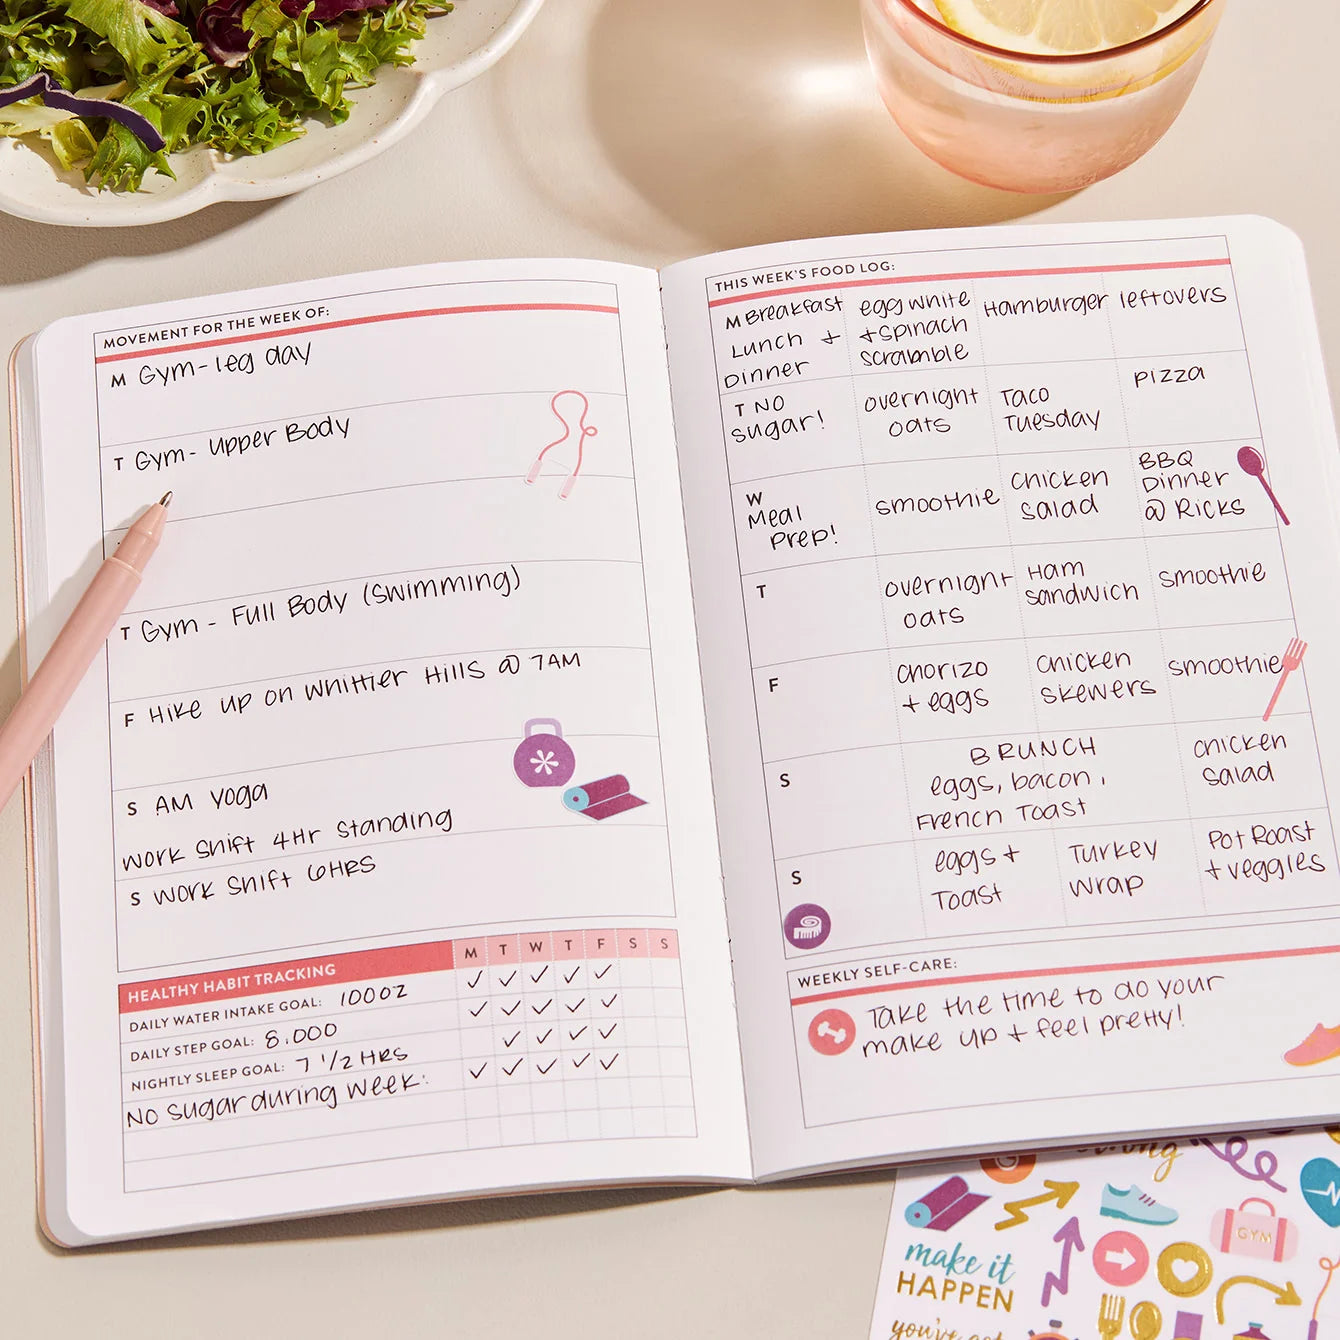 MOVEMENT FOR THE WEEK OF:
M Gym - leg day
T Gym - Upper Body
T Gym - Full Body (Swimming)
F Hike up on Whittier Hills @ 7AM
S AM Yoga
Work Shift 4Hr Standing
S Work Shift 6HRS
HEALTHY HABIT TRACKING M T W T F S S
DAILY WATER INTAKE GOAL: 100OZ ✓ ✓ ✓ ✓ ✓
DAILY STEP GOAL: 8,000 ✓ ✓ ✓ ✓ ✓
NIGHTLY SLEEP GOAL: 7 1/2 HRS ✓ ✓ ✓ ✓
NO Sugar during Week: ✓ ✓ ✓ ✓ ✓
THIS WEEK'S FOOD LOG:
M Breakfast
Lunch +
Dinner
egg white
+ spinach
scramble
Hamburger
leftovers
T NO
sugar!
overnight
oats
Taco
Tuesday
pizza
W
Meal
Prep!
smoothie
chicken
salad
BBQ
Dinner
@ Ricks
T
overnight
oats
Ham
sandwich
smoothie
F
chorizo
+ eggs
chicken
skewers
smoothie
S
BRUNCH
eggs, bacon,
French Toast
chicken
salad
S
eggs +
Toast
Turkey
wrap
Pot Roast
+ veggies
WEEKLY SELF-CARE:
Take the time to do your
make up + feel pretty!
GYM
make it
HAPPEN
you've got